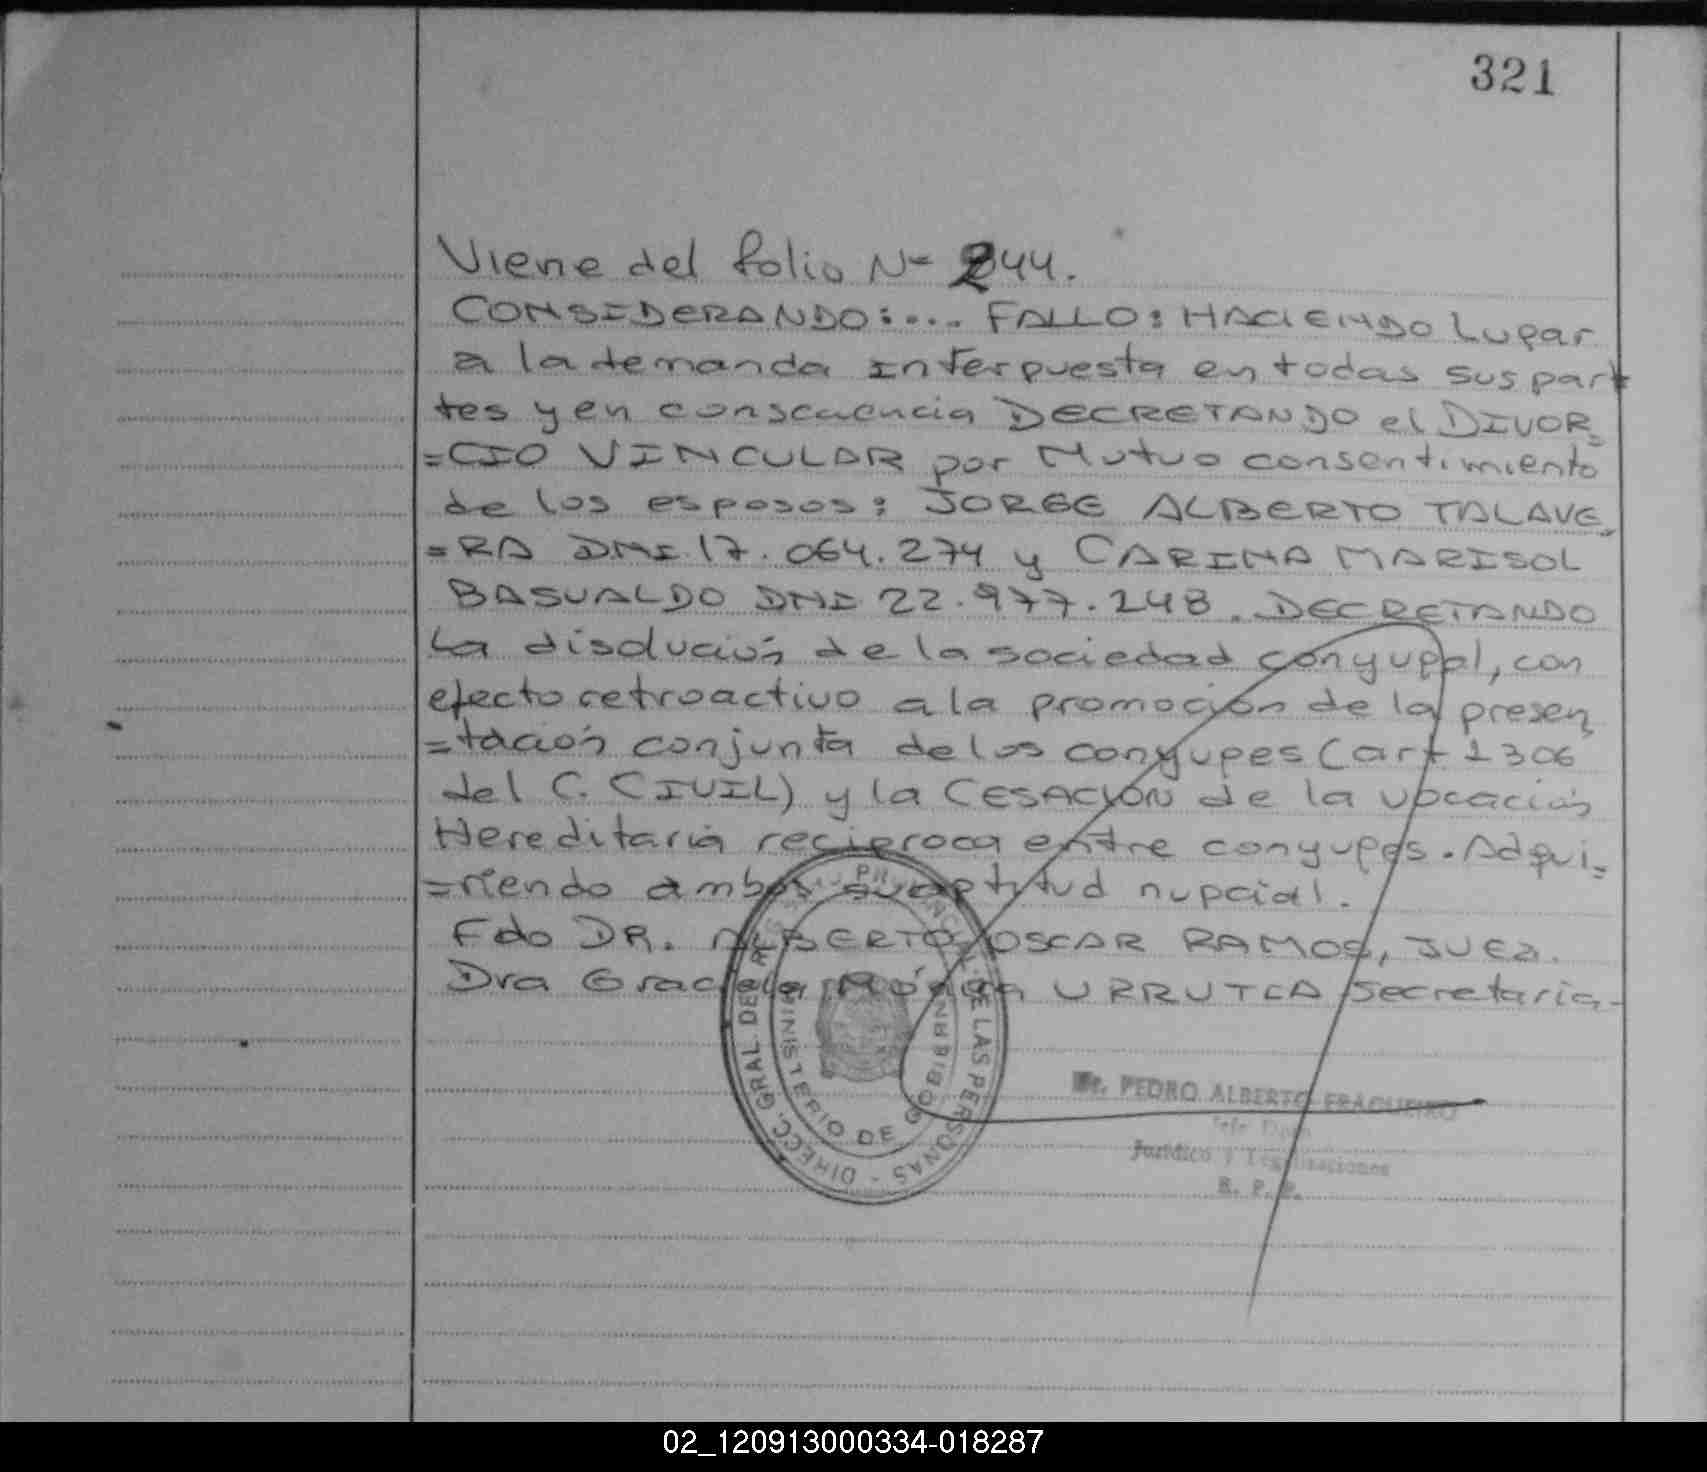 321
Viene del folio Nº 244.
CONSIDERANDO:... FALLO: HACIENDO Lugar
a la demanda interpuesta en todas sus part
tes y en consecuencia DECRETANDO el DIVOR=
=CIO VINCULAR por Mutuo consentimiento
de los esposos: JORGE ALBERTO TALAVE=
=RA DNI 17.064.274 y CARINA MARISOL
BASUALDO DNI 22.977.248. DECRETANDO
La disolución de la sociedad conyugal, con
efecto retroactivo a la promoción de la presen=
=tación conjunta de los conyuges (art 1306
del C. CIVIL) y la CESACIÓN de la vocación
Hereditaria reciproca entre conyuges. Adqui=
=riendo ambos su aptitud nupcial.
Fdo DR. ALBERTO OSCAR RAMOS, JUEZ.
Dra Graciela Mónica URRUTIA Secretaria-
DIRECC. GRAL. DEL REG. PROVINCIAL DE LAS PERSONAS -
MINISTERIO DE GOBIERNO
Dr. PEDRO ALBERTO FRAGUEIRO
Jefe Dpto
Jurídico y Legalizaciones
R. P. P.
02_120913000334-018287